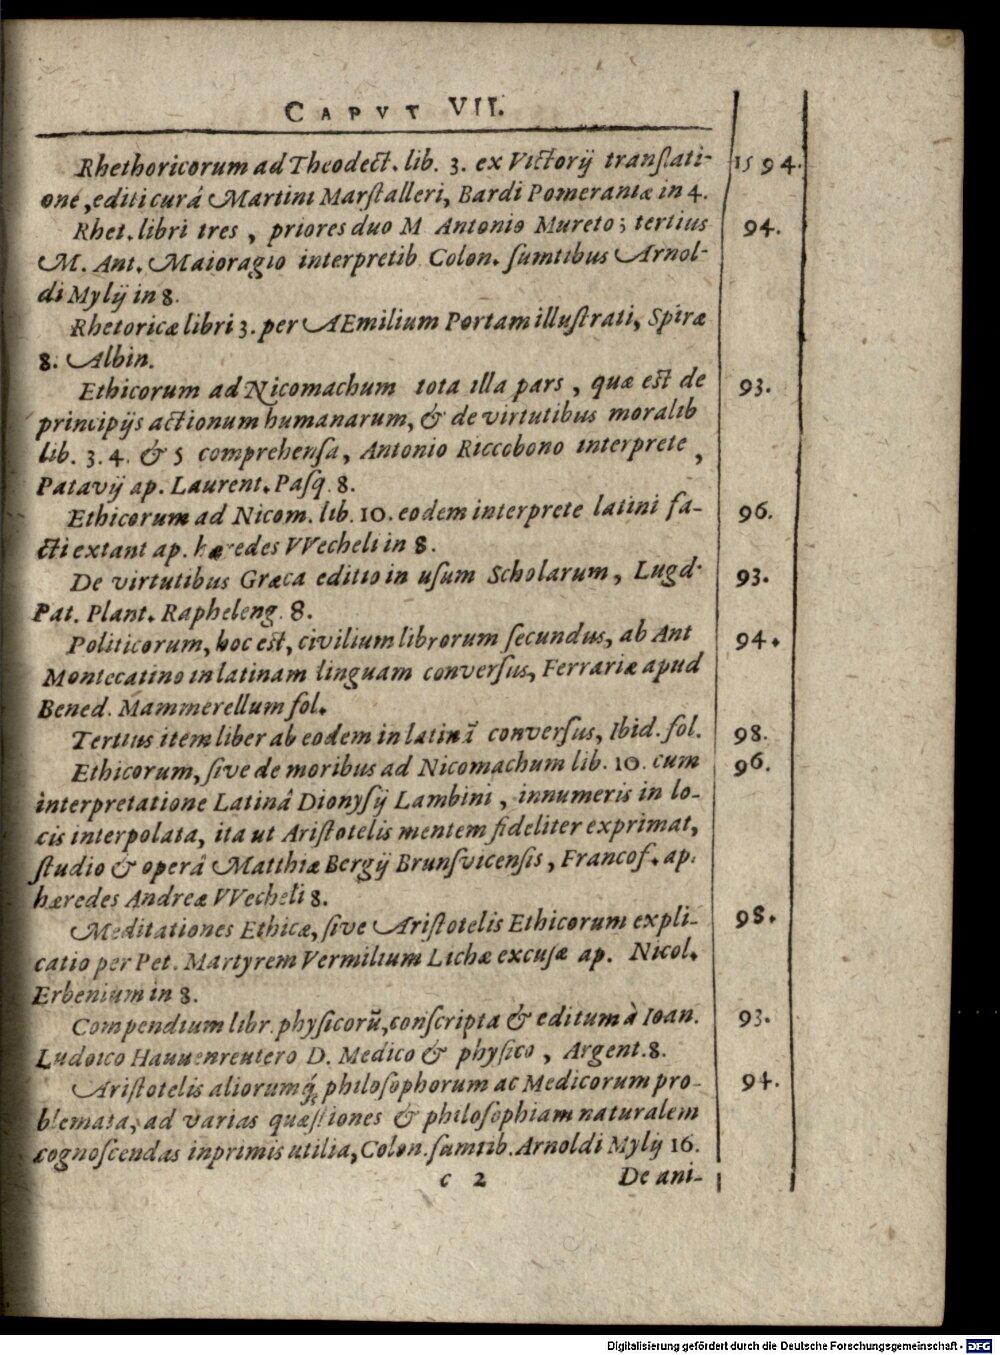 CAPVT VII.
Rhethoricorum ad Theodect. lib. 3. ex Victorij tranſlati- 1594.
one, editi curâ Martini Marſtalleri, Bardi Pomeraniæ in 4.
Rhet. libri tres, priores duo M Antonio Mureto; tertius 94.
M. Ant. Maioragio interpretib Colon. ſumtibus Arnol-
di Mylij in 8.
Rhetoricæ libri 3. per AEmilium Portam illuſtrati, Spiræ
8. Albin.
Ethicorum ad Nicomachum tota illa pars, quæ eſt de 93.
principijs actionum humanarum, & de virtutibus moralib
lib. 3. 4. & 5 comprehenſa, Antonio Riccobono interprete,
Patavij ap. Laurent. Paſq. 8.
Ethicorum ad Nicom. lib. 10. eodem interprete latini fa- 96.
cti extant ap. hæredes VVecheli in 8.
De virtutibus Græca editio in uſum Scholarum, Lugd. 93.
Pat. Plant. Rapheleng. 8.
Politicorum, hoc eſt, civilium librorum ſecundus, ab Ant 94.
Montecatino in latinam linguam converſus, Ferrariæ apud
Bened. Mammerellum fol.
Tertius item liber ab eodem in latinã converſus, Ibid. fol. 98.
Ethicorum, ſive de moribus ad Nicomachum lib. 10. cum 96.
interpretatione Latinâ Dionyſij Lambini, innumeris in lo-
cis interpolata, ita ut Ariſtotelis mentem fideliter exprimat,
ſtudio & operâ Matthiæ Bergij Brunſvicenſis, Francof. ap.
hæredes Andreæ VVecheli 8.
Meditationes Ethicæ, ſive Ariſtotelis Ethicorum expli- 98.
catio per Pet. Martyrem Vermilium Lichæ excuſæ ap. Nicol.
Erbenium in 8.
Compendium libr. phyſicorũ, conſcripta & editum à Ioan. 93.
Ludoico Hauuenreutero D. Medico & phyſico, Argent. 8.
Ariſtotelis aliorumq́; philoſophorum ac Medicorum pro- 94.
blemata, ad varias quæſtiones & philoſophiam naturalem
cognoſcendas inprimis utilia, Colon. ſumtib. Arnoldi Mylij 16.
c 2 De ani-
Digitalisierung gefördert durch die Deutsche Forschungsgemeinschaft - DFG